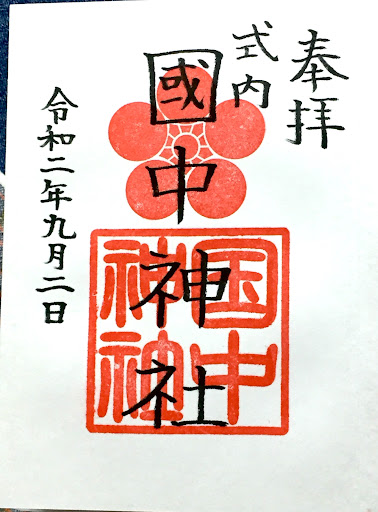 奉拝
式内
國中神社
国中
神社
令和二年九月二日